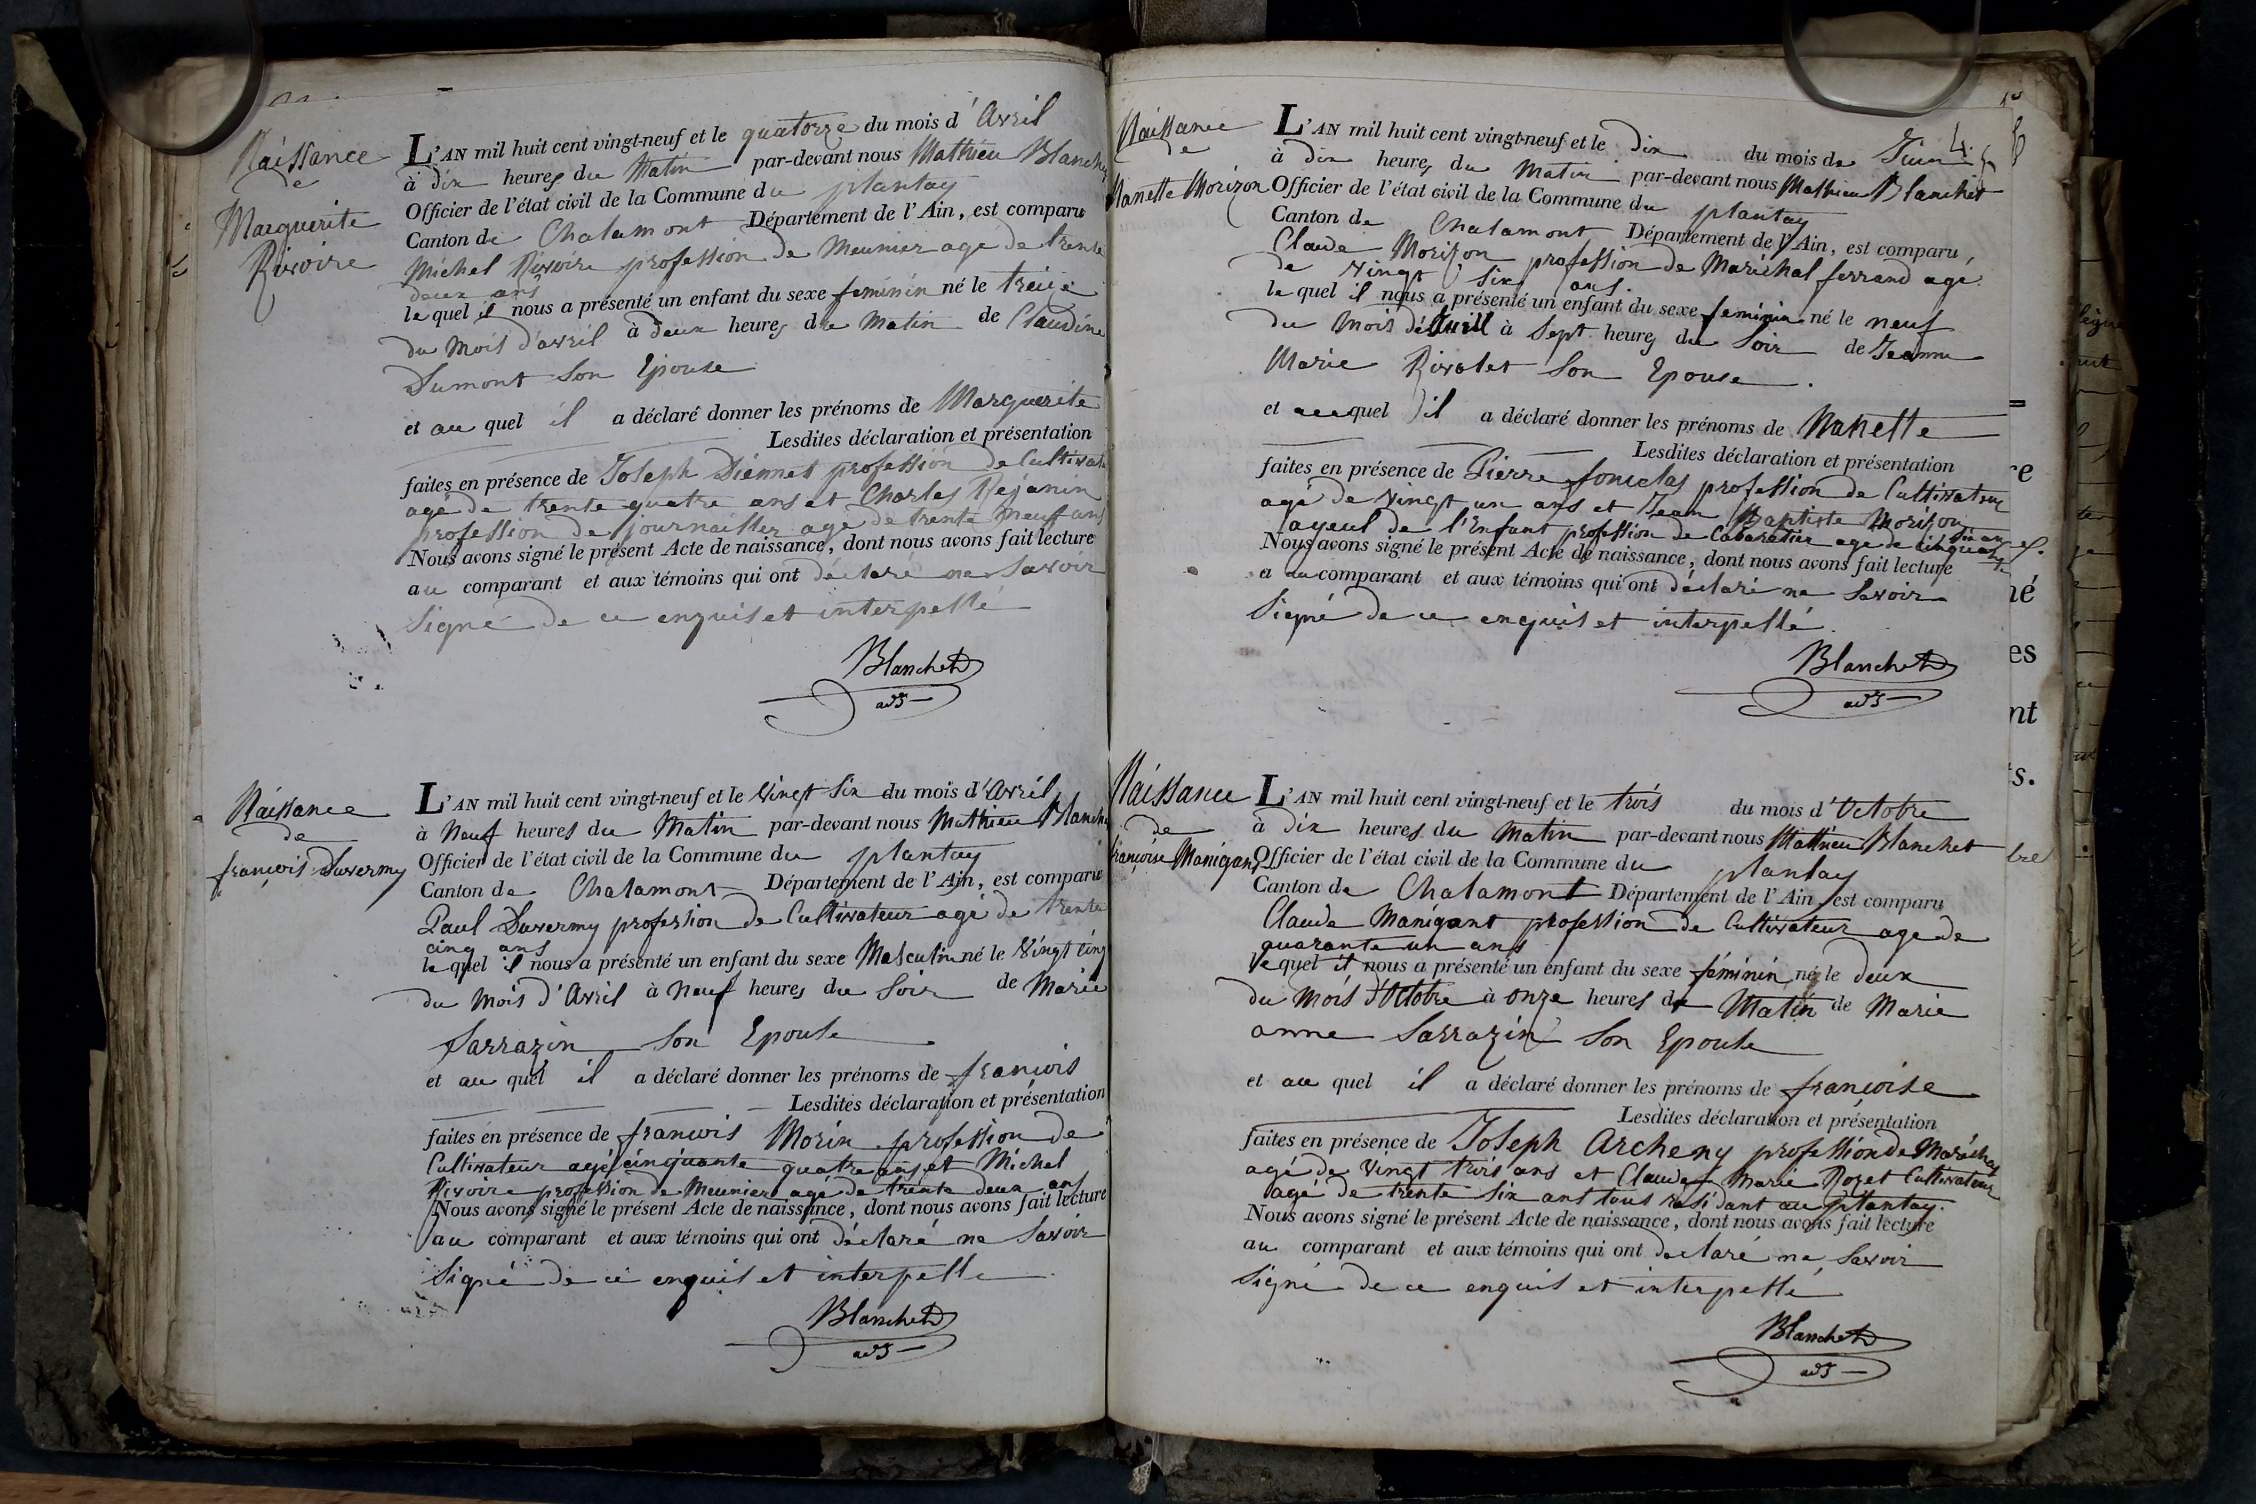 Naissance
de
Marguerite
Rivoire
L'AN mil huit cent vingt-neuf et le quatorze du mois d'Avril
à dix heures du Matin par-devant nous Mathieu Blanchet
Officier de l'état civil de la Commune du plantay
Canton de Chalamont Département de l'Ain, est comparu
Michel Rivoire profession de Meunier agé de trente
deux ans
le quel il nous a présenté un enfant du sexe feminin né le treize
du Mois d'avril à deux heures du Matin de Claudine
Dumont Son Epouse
et au quel il a déclaré donner les prénoms de Marguerite
Lesdites déclaration et présentation
faites en présence de Joseph Diénnet profession de Cultivateur
agé de trente quatre ans et Charles Rejanin
profession de journaillier agé de trente neuf ans
Nous avons signé le présent Acte de naissance, dont nous avons fait lecture
au comparant et aux témoins qui ont déclaré ne Savoir
Signé de ce enquis et interpellé
Blanchet
adj
Naissance
de
françois Duvermy
L'AN mil huit cent vingt-neuf et le Vingt Six du mois d'Avril
à Neuf heures du Matin par-devant nous Mathieu Blanchet
Officier de l'état civil de la Commune du plantay
Canton de Chalamont Département de l'Ain, est comparu
Paul Duvermy profession de Cultivateur agé de trente
cinq ans
le quel il nous a présenté un enfant du sexe Masculin né le Vingt cinq
du Mois d'Avril à Neuf heures du Soir de Marie
Sarrazin Son Epouse
et au quel il a déclaré donner les prénoms de françois
Lesdites déclaration et présentation
faites en présence de françois Morin profession de
Cultivateur agé cinquante quatre ans et Michel
Rivoire profession de Meunier agé de trente deux ans
Nous avons signé le présent Acte de naissance, dont nous avons fait lecture
au comparant et aux témoins qui ont déclaré ne Savoir
Signé de ce enquis et interpellé
Blanchet
adj
4
Naissance
de
Nanette Morizon
L'AN mil huit cent vingt-neuf et le dix du mois de Juin
à dix heures du Matin par-devant nous Mathieu Blanchet
Officier de l'état civil de la Commune du plantay
Canton de Chalamont Département de l'Ain, est comparu
Claude Morizon profession de Maréchal ferrand agé
de Vingt Six ans.
le quel il nous a présenté un enfant du sexe feminin né le neuf
du Mois de à Sept heures du Soir de Jeanne
Marie Rivolet Son Epouse.
et auquel il a déclaré donner les prénoms de Nanette
Lesdites déclaration et présentation
faites en présence de Pierre fonclas profession de Cultivateur
agé de Vingt un ans et Jean Baptiste Morizon
ayeul de l'Enfant profession de Cabaretier agé de cinquante
Six ans
Nous avons signé le présent Acte de naissance, dont nous avons fait lecture
au comparant et aux témoins qui ont déclaré ne Savoir
Signé de ce enquis et interpellé
Blanchet
adj
Naissance
de
françoise Manigant
L'AN mil huit cent vingt-neuf et le trois du mois d'Octobre
à dix heures du Matin par-devant nous Mathieu Blanchet
Officier de l'état civil de la Commune du plantay
Canton de Chalamont Département de l'Ain, est comparu
Claude Manigant profession de Cultivateur agé de
quarante un ans
le quel il nous a présenté un enfant du sexe féminin né le deux
du Mois d'Octobre à onze heures du Matin de Marie
anne Sarrazin Son Epouse
et au quel il a déclaré donner les prénoms de françoise
Lesdites déclaration et présentation
faites en présence de Joseph Archeny profession de Maréchal
agé de Vingt trois ans et Claude Marie Rozet Cultivateur
agé de trente Six ans tous residant au plantay.
Nous avons signé le présent Acte de naissance, dont nous avons fait lecture
au comparant et aux témoins qui ont declaré ne Savoir
Signé de ce enquis et interpellé
Blanchet
adj